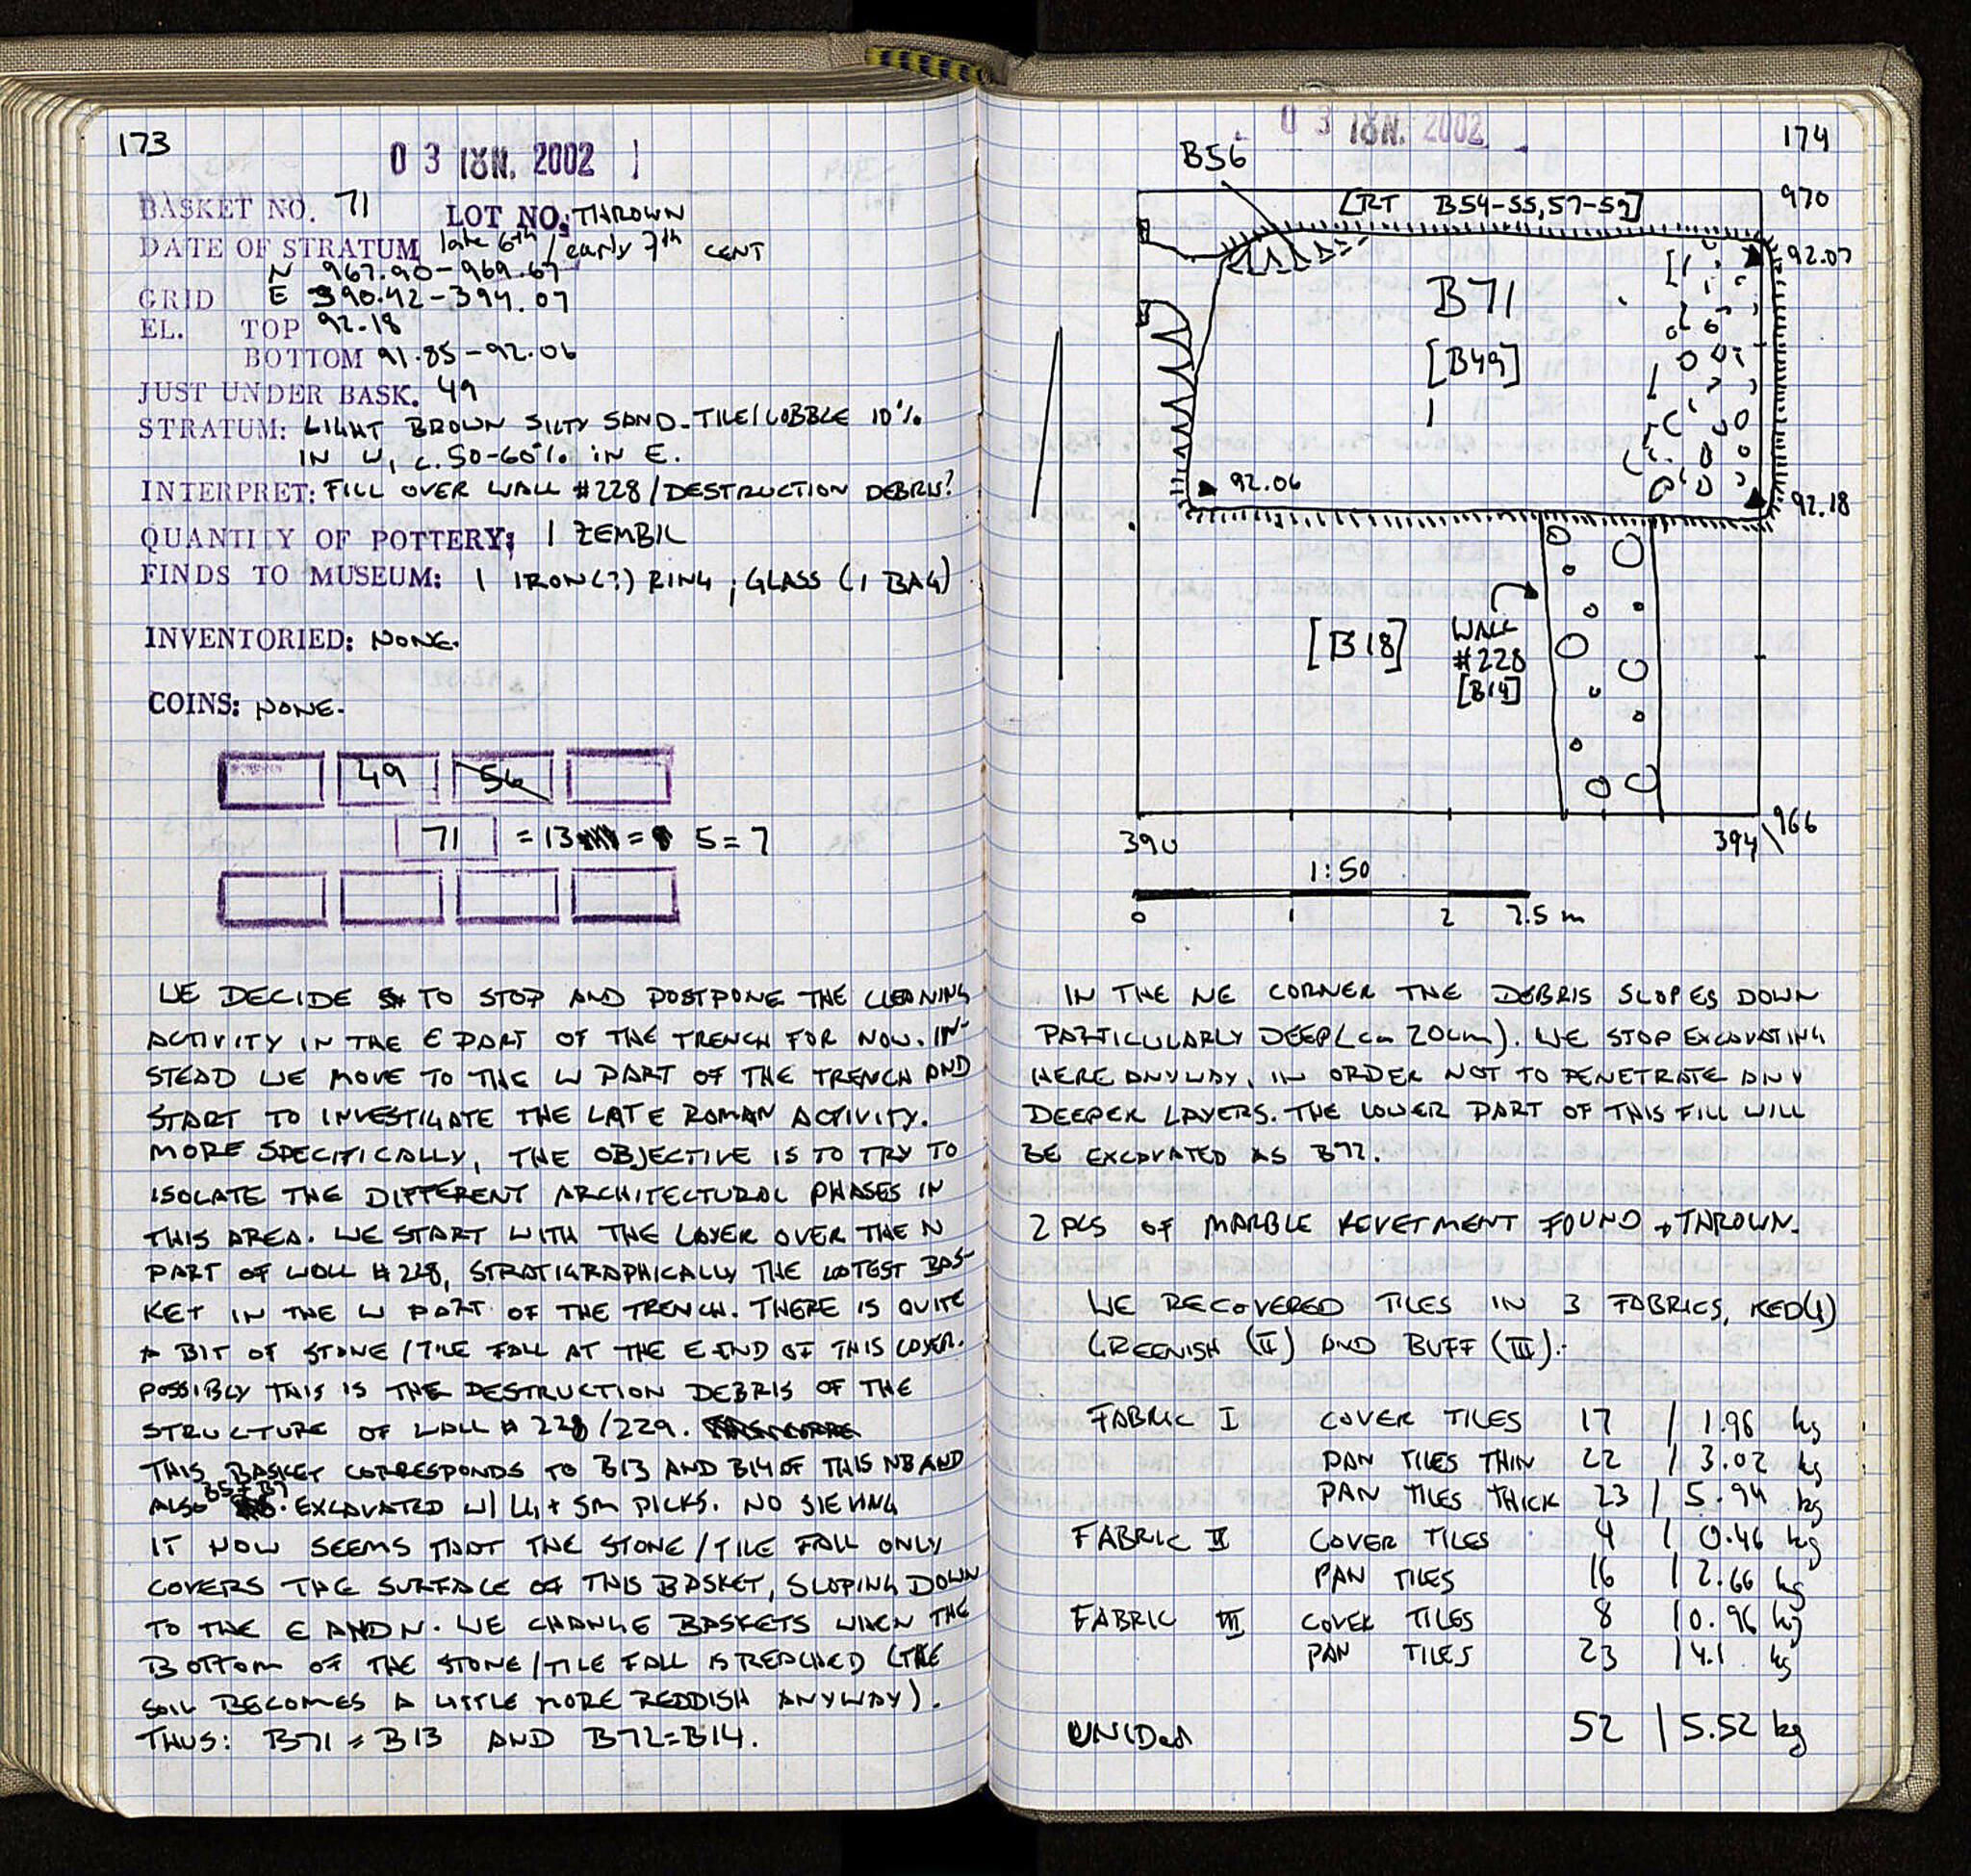 173
0 3 ΙΟΥΝ. 2002
BASKET NO. 71 LOT NO: THROWN
DATE OF STRATUM late 6th / early 7th CENT
N 967.90-969.67
GRID E 390.42-394.07
EL. TOP 92.18
BOTTOM 91.85-92.06
JUST UNDER BASK. 49
STRATUM: LIGHT BROWN SILTY SAND-TILE/COBBLE 10%
IN W, c.50-60% IN E.
INTERPRET: FILL OVER WALL #228/DESTRUCTION DEBRIS?
QUANTITY OF POTTERY: 1 ZEMBIL
FINDS TO MUSEUM: 1 IRON(?) RING; GLASS (1 BAG)
INVENTORIED: NONE.
COINS: NONE.
49 56
71 = 13 = 5 = 7
WE DECIDE TO STOP AND POSTPONE THE CLEANING
ACTIVITY IN THE E PART OF THE TRENCH FOR NOW. IN-
STEAD WE MOVE TO THE W PART OF THE TRENCH AND
START TO INVESTIGATE THE LATE ROMAN ACTIVITY.
MORE SPECIFICALLY, THE OBJECTIVE IS TO TRY TO
ISOLATE THE DIFFERENT ARCHITECTURAL PHASES IN
THIS AREA. WE START WITH THE LAYER OVER THE N
PART OF WALL #228, STRATIGRAPHICALLY THE LATEST BAS-
KET IN THE W PART OF THE TRENCH. THERE IS QUITE
A BIT OF STONE/TILE FALL AT THE E END OF THIS LAYER.
POSSIBLY THIS IS THE DESTRUCTION DEBRIS OF THE
STRUCTURE OF WALL #228/229.
THIS BASKET CORRESPONDS TO B13 AND B14 OF THIS NB AND
ALSO B5+B7. EXCAVATED W/ LG + SM PICKS. NO SIEVING
IT NOW SEEMS THAT THE STONE/TILE FALL ONLY
COVERS THE SURFACE OF THIS BASKET, SLOPING DOWN
TO THE E AND N. WE CHANGE BASKETS WHEN THE
BOTTOM OF THE STONE/TILE FALL IS REACHED (THE
SOIL BECOMES A LITTLE MORE REDDISH ANYWAY).
THUS: B71 = B13 AND B72=B14.
0 3 ΙΟΥΝ. 2002
174
B56
[RT B54-55,57-59]
970
92.07
B71
[B49]
92.06
92.18
[B18]
WALL
#228
[B14]
390
394
966
1:50
0 1 2 2.5 m
IN THE NE CORNER THE DEBRIS SLOPES DOWN
PARTICULARLY DEEP (ca 20cm). WE STOP EXCAVATING
HERE ANYWAY, IN ORDER NOT TO PENETRATE ANY
DEEPER LAYERS. THE LOWER PART OF THIS FILL WILL
BE EXCAVATED AS B72.
2 PCS OF MARBLE REVETMENT FOUND + THROWN.
WE RECOVERED TILES IN 3 FABRICS, RED(I)
GREENISH (II) AND BUFF (III):
FABRIC I COVER TILES 17 / 1.98 kg
PAN TILES THIN 22 / 3.02 kg
PAN TILES THICK 23 / 5.94 kg
FABRIC II COVER TILES 4 / 0.46 kg
PAN TILES 16 / 2.66 kg
FABRIC III COVER TILES 8 / 0.96 kg
PAN TILES 23 / 4.1 kg
UNIDed 52 / 5.52 kg